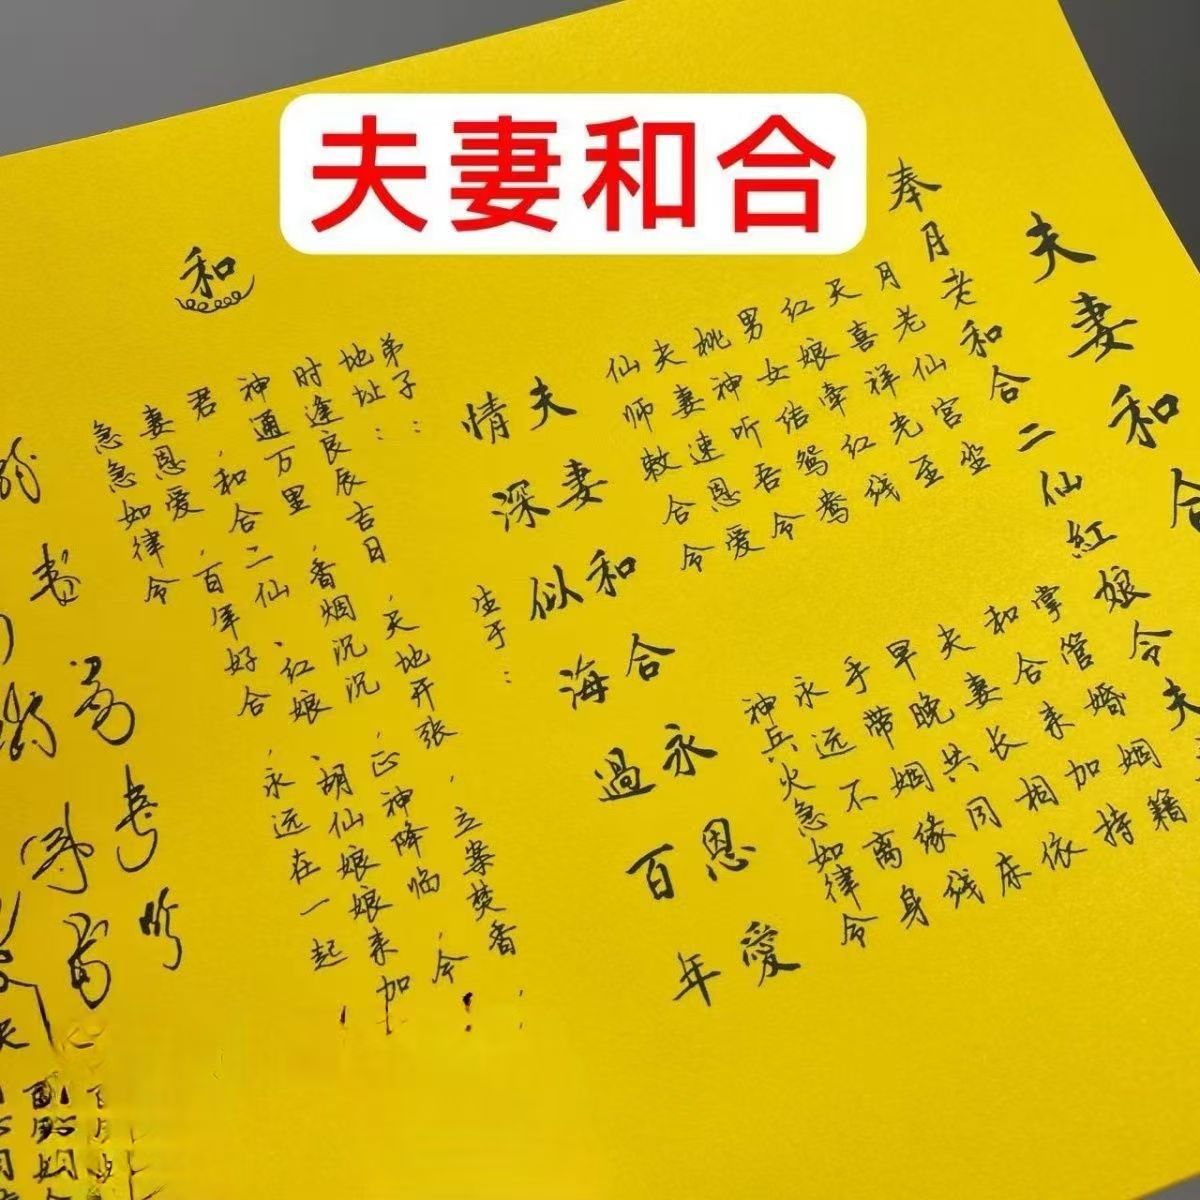 夫妻和合
夫妻和合
奉月老和合二仙紅娘令夫
月老仙宫坐
天喜祥光至
红娘牵红线
男女结鸳鸯
桃神听吾令
夫妻速恩爱
仙师敕合令
掌管婚姻籍
和合来加持
夫妻长相依
早晚共同床
手带姻缘线
永远不离身
神兵火急如律令
夫妻和合永恩愛
情深似海過百年
弟子: 生于:
地址:
时逢良辰吉日,天地开张,立案焚香,
神通万里,香烟沉沉,正神降临,今
君,和合二仙、红娘、胡仙娘娘来加
妻恩爱,百年好合,永远在一起
急急如律令
和